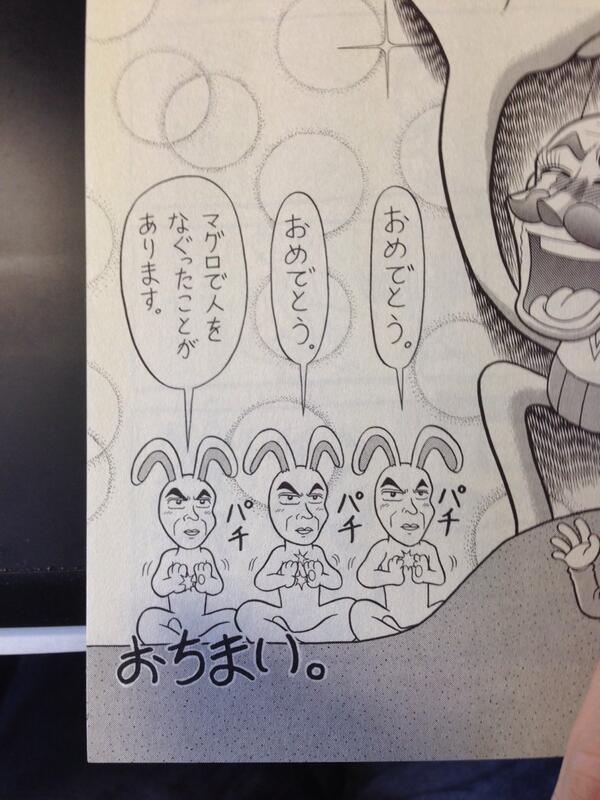 おめでとう。
おめでとう。
マグロで人を
なぐったことが
あります。
パチ
パチ
パチ
おちまい。